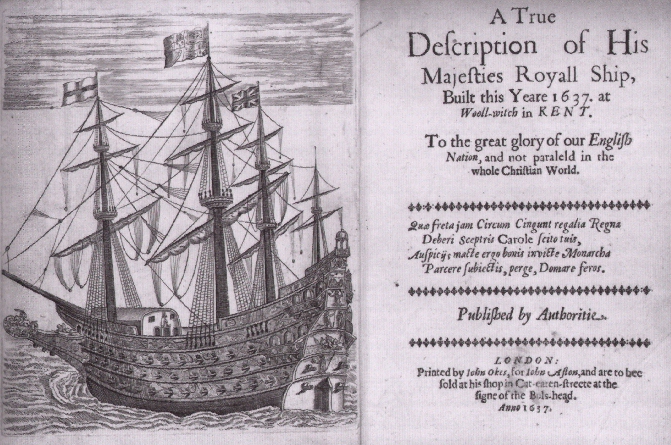 A True
Deſcription of His
Majeſties Royall Ship,
Built this Yeare 1637. at
Wooll-witch in KENT.
To the great glory of our Engliſh
Nation, and not paraleld in the
whole Chriſtian World.
Quæ freta jam Circum Cingunt regalia Regna
Deberi Sceptris Carole ſcito tuis,
Auſpicijs macte ergo bonis invicte Monarcha
Parcere ſubiectis, perge, Domare feros.
Publiſhed by Authoritie.
LONDON:
Printed by Iohn Okes, for Iohn Aſton, and are to bee
ſold at his ſhop in Cat-eaten-ſtreete at the
ſigne of the Buls-head.
Anno 1637.